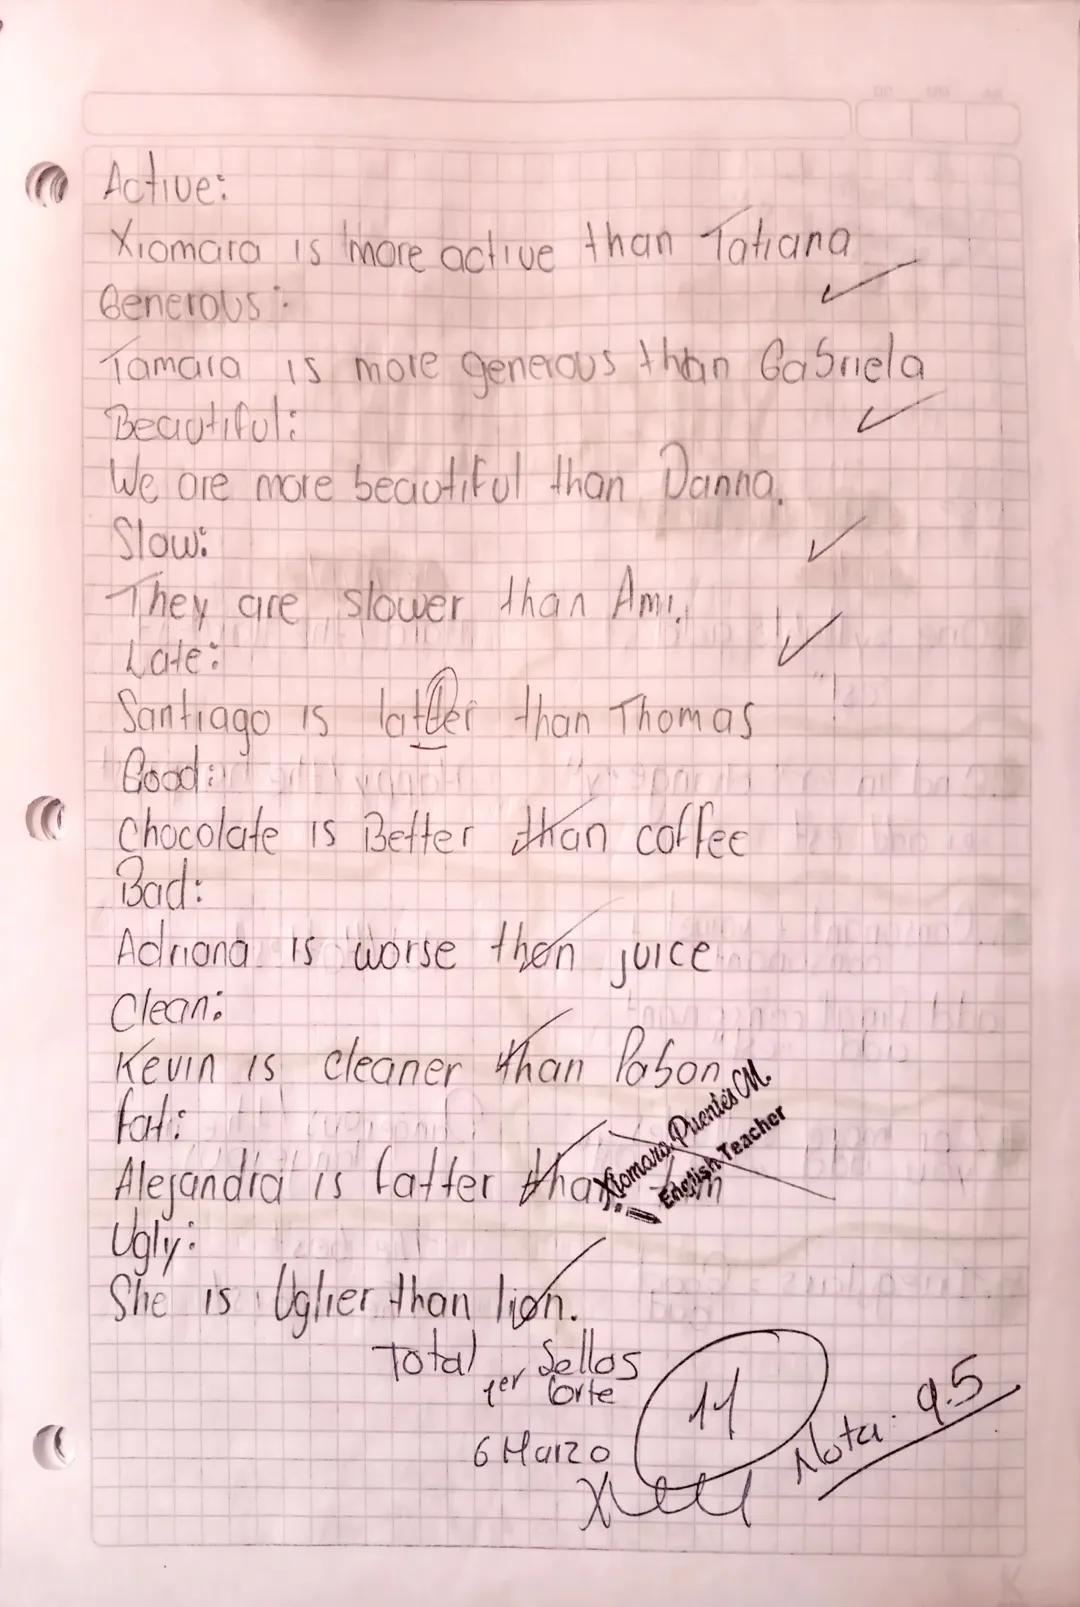 Active:
Xiomara is more active than Tatiana
Generous:
Tamara is more generous than Gabriela
Beautiful:
We are more beautiful than Danna.
Slow:
They are slower than Ami.
Late:
Santiago is latter than Thomas
Good:
Chocolate is Better than coffee
Bad:
Adriana is worse then juice
Clean:
Kevin is cleaner than Pabon
fat:
Alejandra is fatter than
Xiomara Puentes M.
English Teacher
Ugly:
She is Uglier than lion.
Total Sellos
1er Corte
6 Marzo
Nota: 9.5